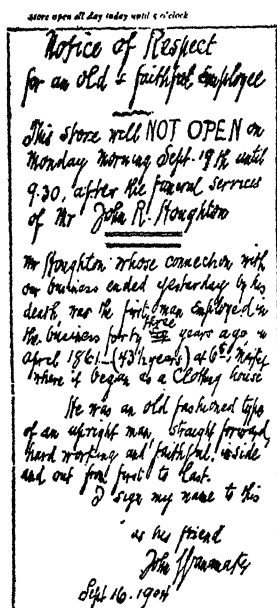 Store open all day today until 5 o'clock
Notice of Respect
for an old & faithful Employee
This store will NOT OPEN on
Monday morning Sept. 19th until
9.30, after the funeral services
of Mr John R. Houghton
Mr Houghton whose connection with
our business ended yesterday by his
death was the first man employed in
the business forty three years ago in
april 1861 - (43½ years) at 6th & Market
where it began as a Clothing house
He was an old fashioned type
of an upright man, straight forward,
hard working and faithful inside
and out from first to last.
I sign my name to this
as his friend
John Wanamaker
Sept 16. 1904